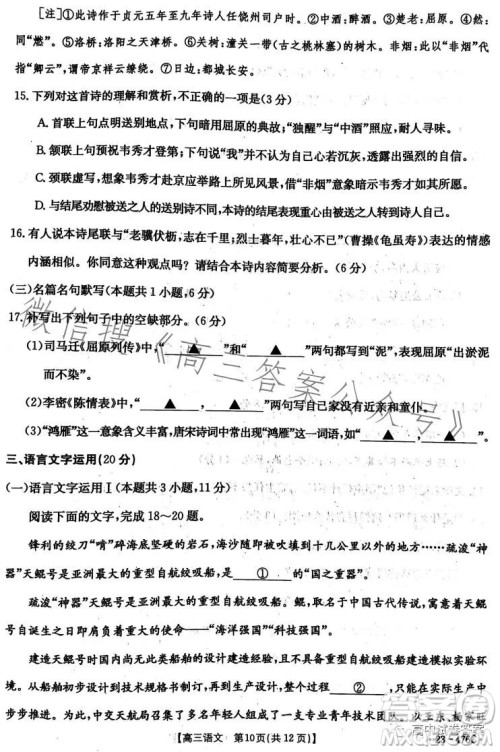 [注]①此诗作于贞元五年至九年诗人任饶州司户时。②中酒:醉酒。③楚老:屈原。④然:
同“燃”。⑤洛桥:洛阳之天津桥。⑥关树:潼关一带(古之桃林塞)的树木。非烟:此以“非烟”代
指“卿云”,谓帝京祥云缭绕。⑦日边:都城长安。
15.下列对这首诗的理解和赏析,不正确的一项是(3分)
A.首联上句点明送别地点,下句暗用屈原的典故;“独醒”与“中酒”照应,耐人寻味。
B.颔联写景,想象韦秀才登第荣归,表现出诗人心如若沉灰,透露出强烈的人生感慨。
C.颈联用虚写,想象韦秀才赴京应举途中之所见风景,借“非烟”暗示对韦秀才的祝福。
D.与结尾劝慰被送之人的送别诗不同,本诗的结尾表现重心由被送者转向诗人自己。
16.有人说本诗尾联与“老骥伏枥,志在千里;烈士暮年,壮心不已”(曹操《龟虽寿》)表达的情感
内涵相近。你同意这种观点吗?请结合本诗内容简要分析。(6分)
(三)名篇名句默写(本题共1小题,6分)
17.补写出下列句子中的空缺部分。(6分)
(1)司马迁《屈原列传》中,“▲”和“▲”两句都写到“泥”,表现屈原“出淤泥
而不染”。
(2)李密《陈情表》中,“▲,▲”两句写自己家里没有近亲和童仆。
(3)“鸿雁”这一意象含义丰富,唐宋诗词中常出现“鸿雁”这一词语,如“▲,▲”。
三、语言文字运用(20分)
(一)语言文字运用Ⅰ(本题共3小题,11分)
阅读下面的文字,完成18~20题。
锋利的绞刀“啃”碎海底坚硬的岩石,海沙随即被吹填到十几公里以外的地方……疏浚“神
器”天鲲号是亚洲最大的重型自航绞吸船,是 ① 的“国之重器”。
疏浚“神器”天鲲号是亚洲最大的重型自航绞吸船,是世界疏浚史上的中国传奇,天鲲
号自诞生之日即肩负着重大使命——“海洋强国”“科技强国”。
建造天鲲号时国内尚无此类船舶的设计建造经验,且不具备重型自航绞吸船模拟实验环
境。从船舶初步设计到技术规格书制订,再到生产设计,整个过程 ② ,在一次次的进
步中,中交天航局集中了多名年轻人组建了一支专业青年技术团队,以王永、张晓枫、田桂平
【高三语文 第10页(共12页)】
23-476C
微信搜《高三答案公众号》